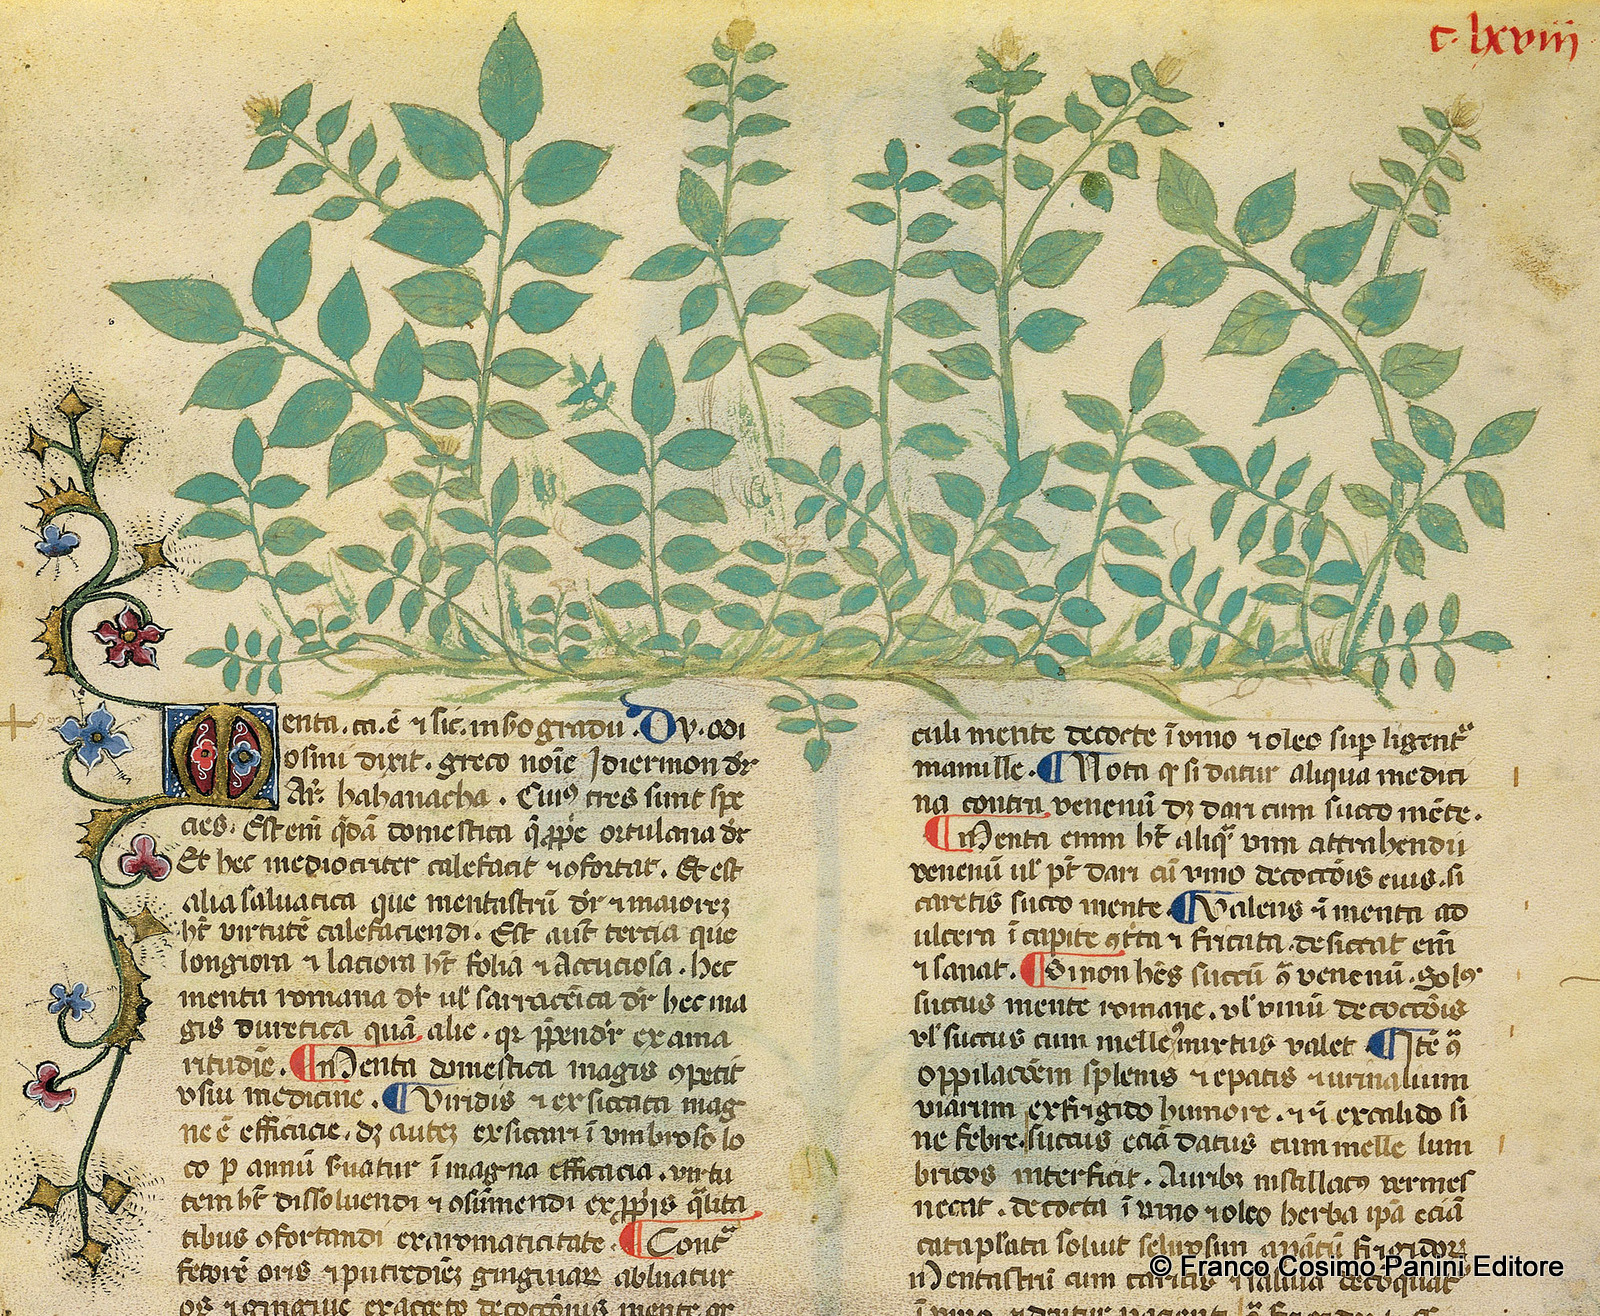 c. lxviii
Menta. ca. ē ⁊ sic. in ẜo gradu. Dy.
dixit. greco noīe
Ar̄. habanacha. Cuiꝯ tres sunt spē
cies. Est eni q̄dā domestica q̄ ꝓpe ortulana dr̄
Et hec mediocriter calefacit ⁊ ꝯfortat. Et est
alia saluatica que mentastrū dr̄ ⁊ maiorez
ht̄ virtutē calefaciendi. Est aut̄ tercia que
longiora ⁊ laciora ht̄ folia ⁊ accuciora. hec
menta romana dr̄ ul̄ sarracēica dr̄ hec ma
gis diuretica quā alie. qr̄ ex ama
ritudīe. ¶ Menta domestica magis ꝯpetit
vsui medicine. ¶ Viridis ⁊ exsiccata mag
ne ē efficacie. dꝫ autez exsiccari ī vmbroso lo
co p annū ẜuatur ī magna efficacia. virtu
tem ht̄ dissoluendi ⁊ ꝯsūmendi ex ꝓpiis q̄lita
tibus ꝯfortandi ex aromaticitate. ¶ Cont̄
fetorē oris ⁊ putrediēz gingiuaꝝ abluatur
os ⁊ gingiue ex aceto decoctōnis mente
culi mente decocte ī vino ⁊ oleo sup ligent̄
mamille. ¶ Nota qꝫ si datur aliqua medici
na contra venenū dꝫ dari cum succo mēte.
¶ Menta enim ht̄ aliq̄ vim attrahendi
venenū ul̄ pt̄ dari cū vino decoctōis eius. si
caretis succo mente. ¶ Valens ī menta ad
ulcera ī capite ꝯt̄ta ⁊ fricata. desiccat eni
⁊ sanat. ¶ Si non hēs succū ꝯ̄ venenū.
succus mente romane. vl̄ vinū decoctōis
vl̄ succus cum melle mixtus valet. ¶ Itē ꝯ̄
oppilacōem splenis ⁊ epatis ⁊ urinalium
viarum ex frigido humore. ⁊ ñ ex calido si
ne febre. succus eciā datus cum melle lum
bricos interficit. Auribꝫ instillatꝯ vermes
necat. decocta ī vino ⁊ oleo herba ipa eciā
cataplata soluit
Mentastrū cum
© Franco Cosimo Panini Editore